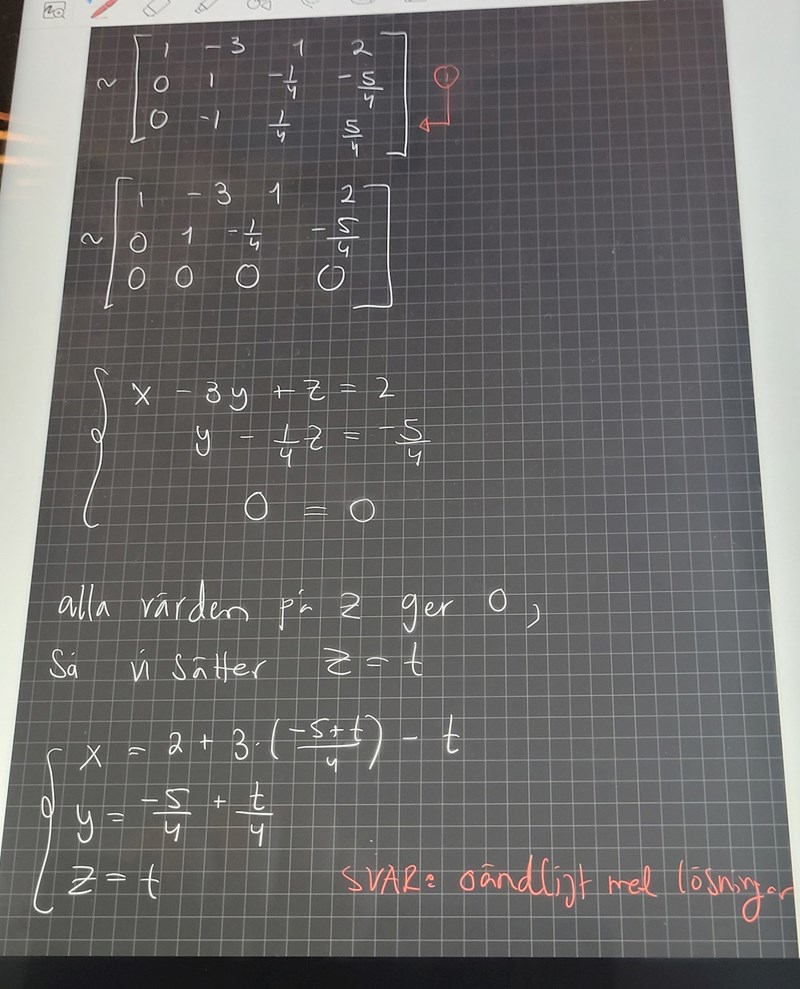 1 -3 1 2
~ 0 1 -1/4 -5/4 ①
0 -1 1/4 5/4
1 -3 1 2
~ 0 1 -1/4 -5/4
0 0 0 0
x - 3y + z = 2
y - 1/4 z = -5/4
0 = 0
alla värden på z ger 0,
Så vi sätter z = t
x = 2 + 3·(-5+t/4) - t
y = -5/4 + t/4
z = t
SVAR: oändligt med lösningar